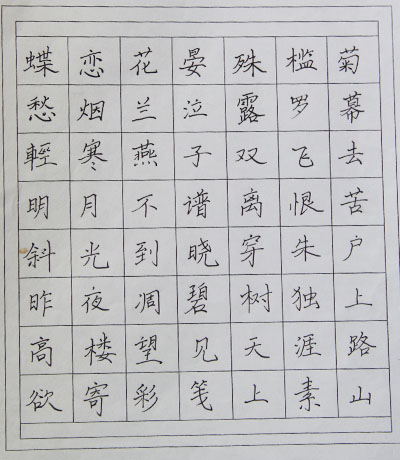 蝶恋花晏殊槛菊
愁烟兰泣露罗幕
輕寒燕子双飞去
明月不谱离恨苦
斜光到晓穿朱户
昨夜凋碧树独上
高楼望见天涯路
欲寄彩笺上素山